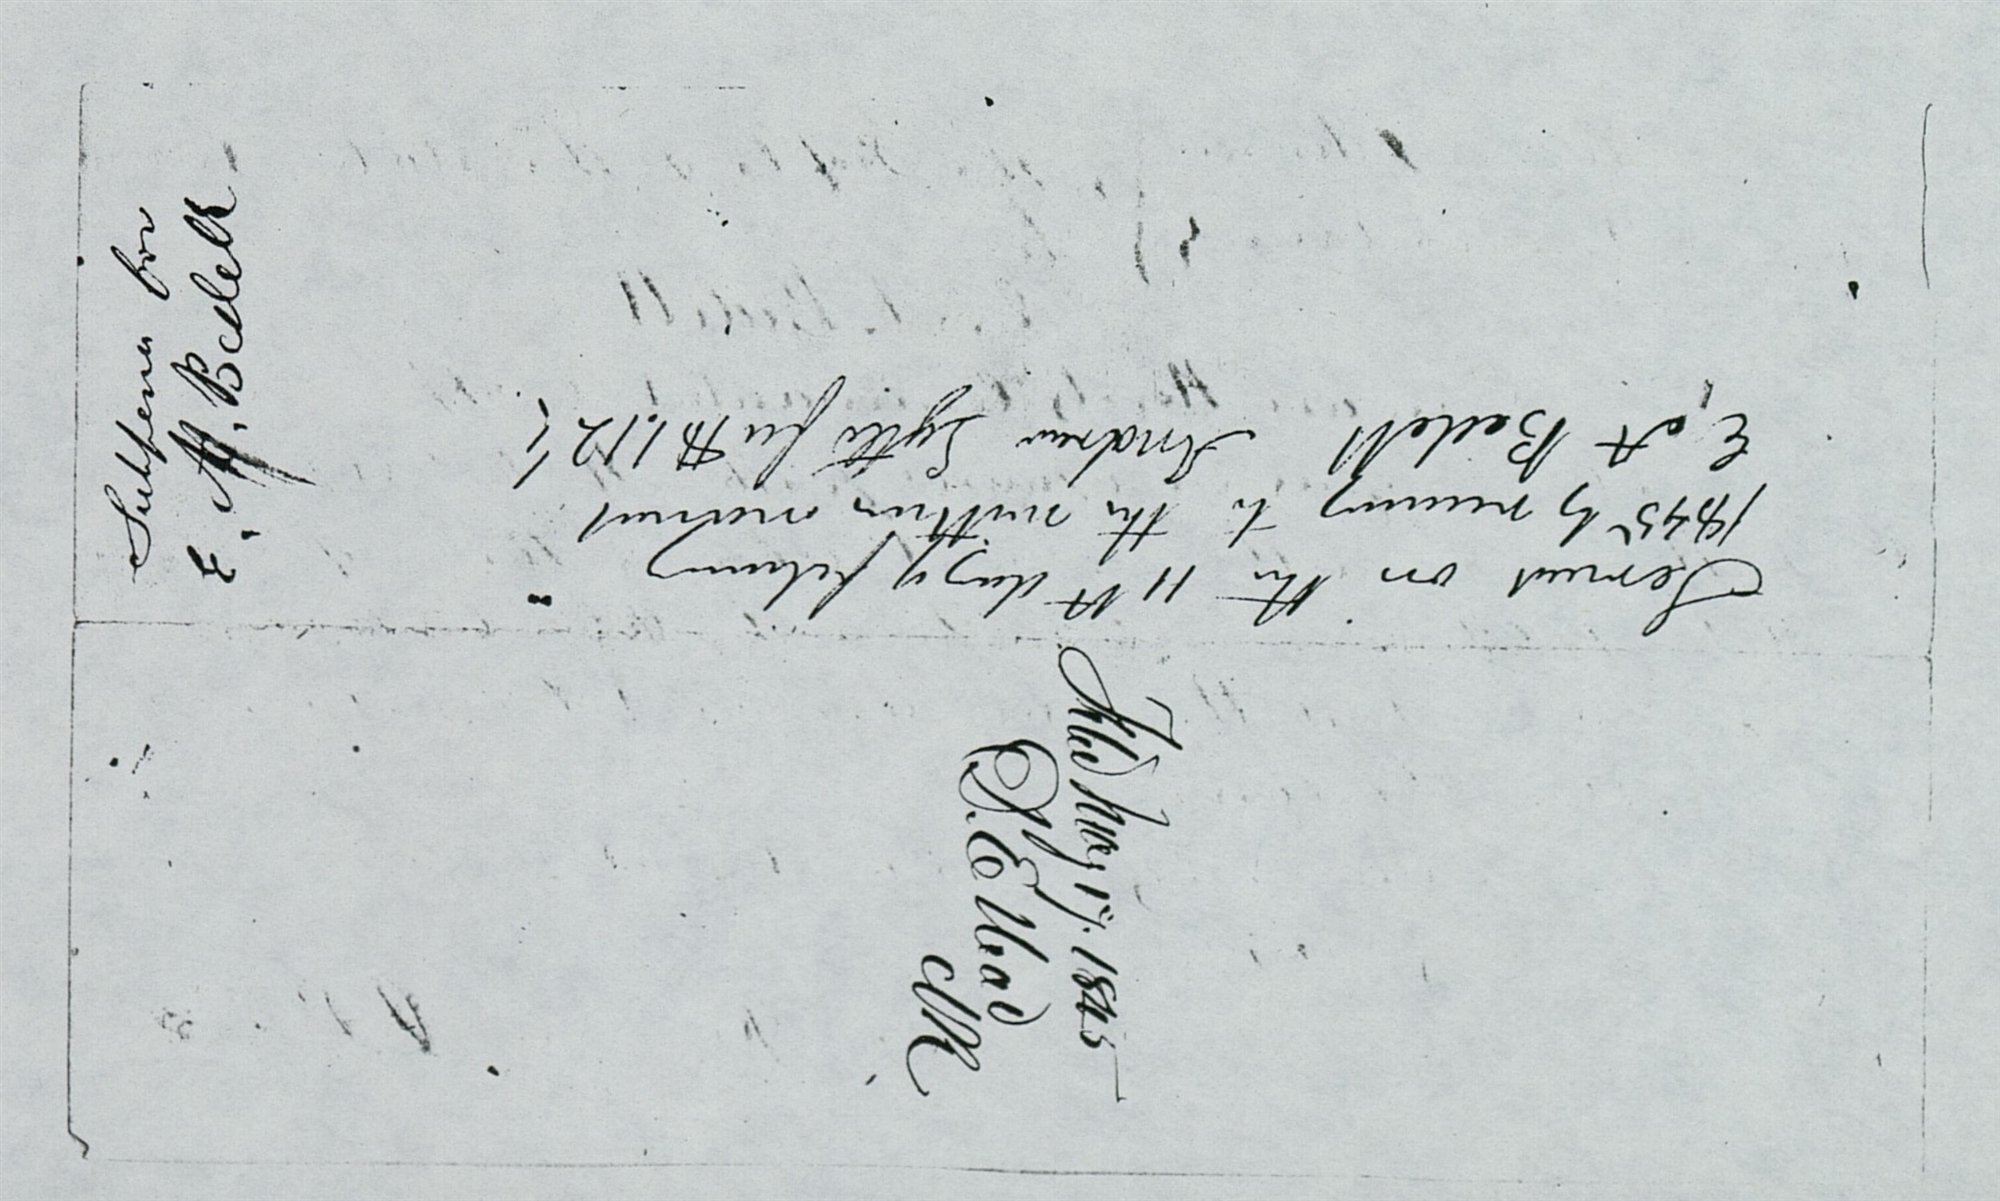 Subpena for
E. A. Bedell
Served on the 11th day of february
1845 by reading to the within named
E, A Bedell Andrew Lytle fee $1.12½
Filed May 17. 1845
D. E Head
Clk